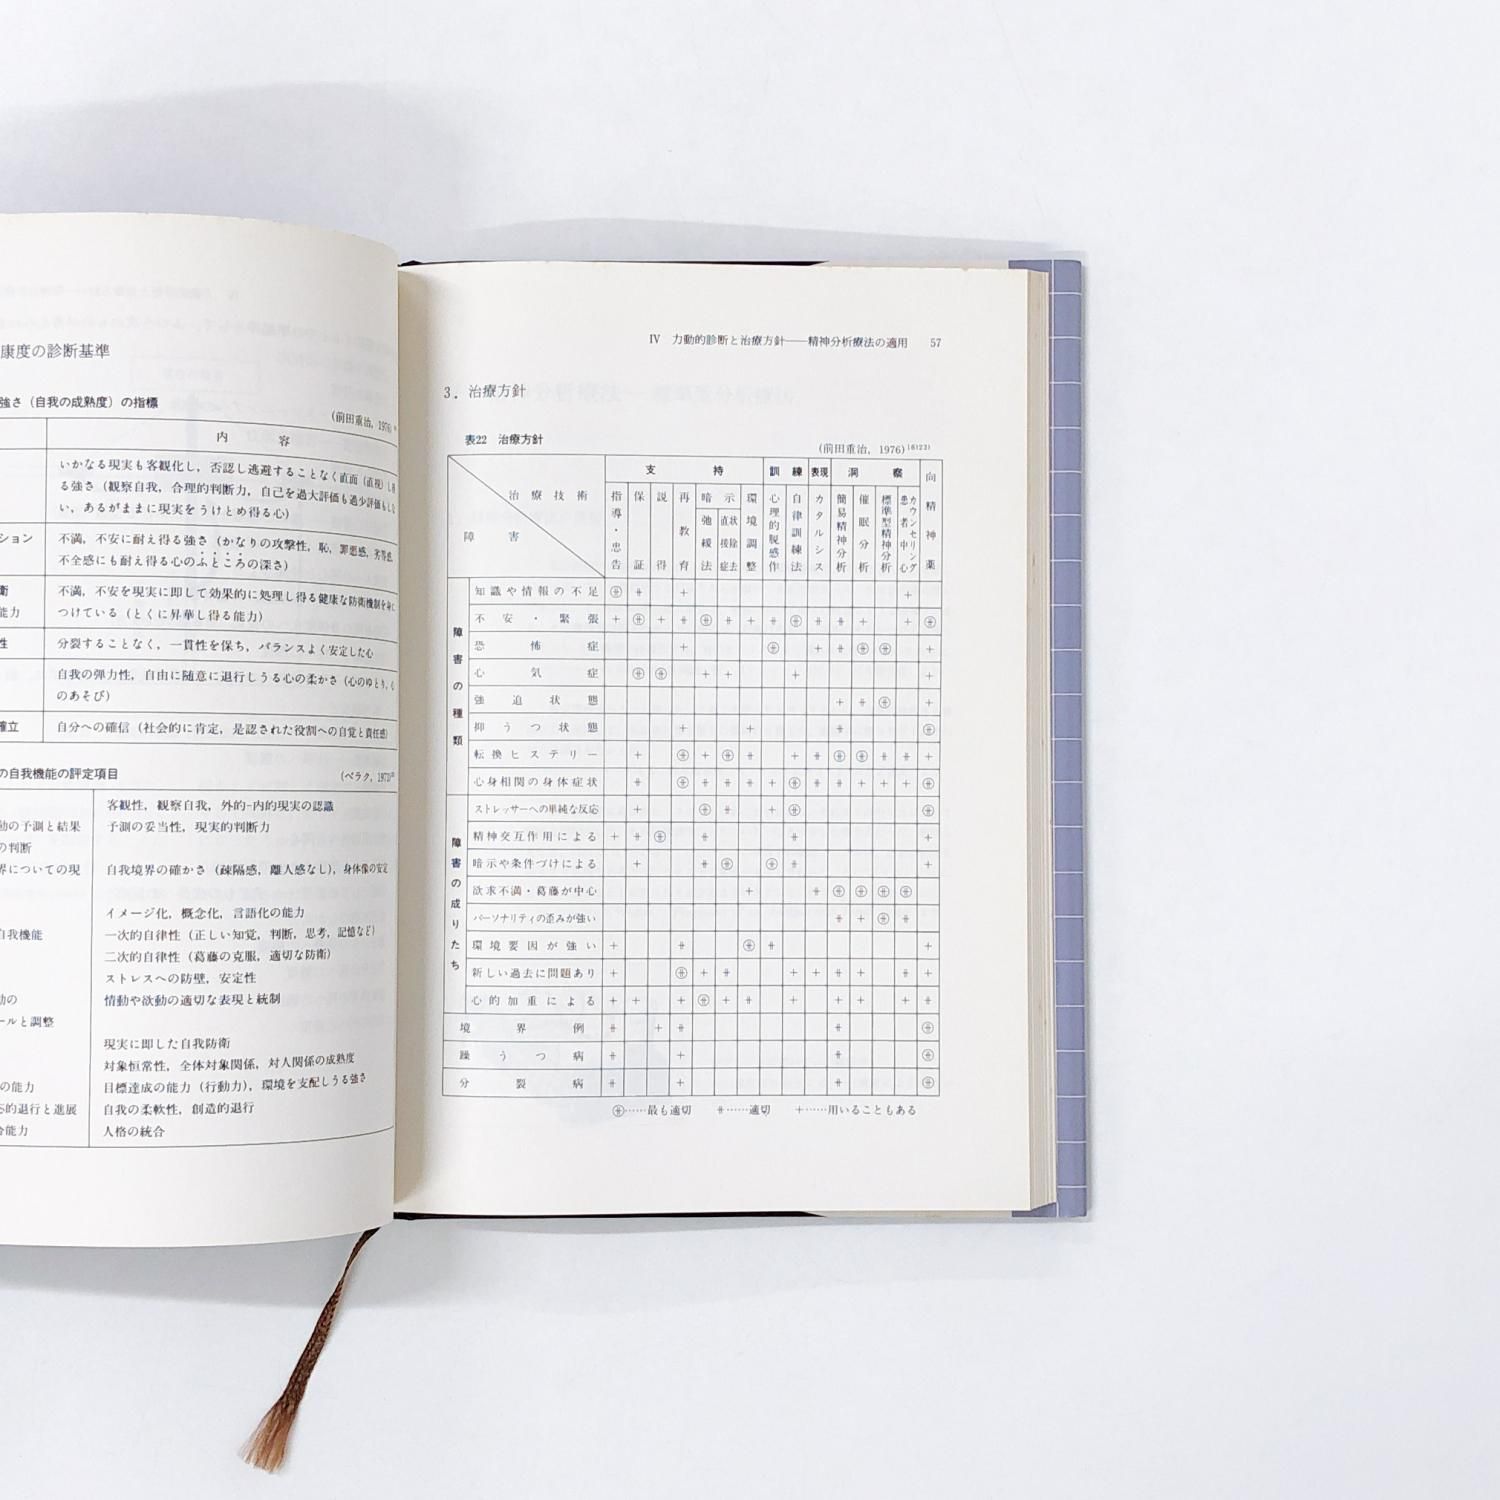 康度の診断基準
強さ（自我の成熟度）の指標
（前田重治, 1976）
内 容
いかなる現実も客観化し，否認し逃避することなく直面（直視）し得
る強さ（観察自我，合理的判断力，自己を過大評価も過少評価もしな
い，あるがままに現実をうけとめ得る心）
ション
不満，不安に耐え得る強さ（かなりの攻撃性，恥，罪悪感，劣等感，
不全感にも耐え得る心のふところの深さ）
衛
不満，不安を現実に即して効果的に処理し得る健康な防衛機制を身に
能力
つけている（とくに昇華し得る能力）
性
分裂することなく，一貫性を保ち，バランスよく安定した心
自我の弾力性，自由に随意に退行しうる心の柔かさ（心のゆとり，心
のあそび）
確立
自分への確信（社会的に肯定，是認された役割への自覚と責任感）
の自我機能の評定項目
（ベラク, 1973）
客観性，観察自我，外的-内的現実の認識
動の予測と結果
予測の妥当性，現実的判断力
の判断
界についての現
自我境界の確かさ（疎隔感，離人感なし），身体像の安定
イメージ化，概念化，言語化の能力
自我機能
一次的自律性（正しい知覚，判断，思考，記憶など）
二次的自律性（葛藤の克服，適切な防衛）
ストレスへの防壁，安定性
動の
情動や欲動の適切な表現と統制
ールと調整
現実に即した自我防衛
対象恒常性，全体対象関係，対人関係の成熟度
の能力
目標達成の能力（行動力），環境を支配しうる強さ
的退行と進展
自我の柔軟性，創造的退行
能力
人格の統合
IV 力動的診断と治療方針——精神分析療法の適用 57
3．治療方針
表22 治療方針
（前田重治, 1976）16)23)
治療技術
障害
支持
訓練
表現
洞察
向精神薬
指導・忠告
保証
説得
再教育
暗示
弛緩法
直接症状除去
環境調整
心理的脱感作
自律訓練法
カタルシス
簡易精神分析
催眠分析
標準型精神分析
患者中心カウンセリング
障害の種類
知識や情報の不足
不安・緊張
恐怖症
心気症
強迫状態
抑うつ状態
転換ヒステリー
心身相関の身体症状
障害の成りたち
ストレッサーへの単純な反応
精神交互作用による
暗示や条件づけによる
欲求不満・葛藤が中心
パーソナリティの歪みが強い
環境要因が強い
新しい過去に問題あり
心的加重による
境界例
躁うつ病
分裂病
⊕……最も適切 ⧺……適切 ＋……用いることもある